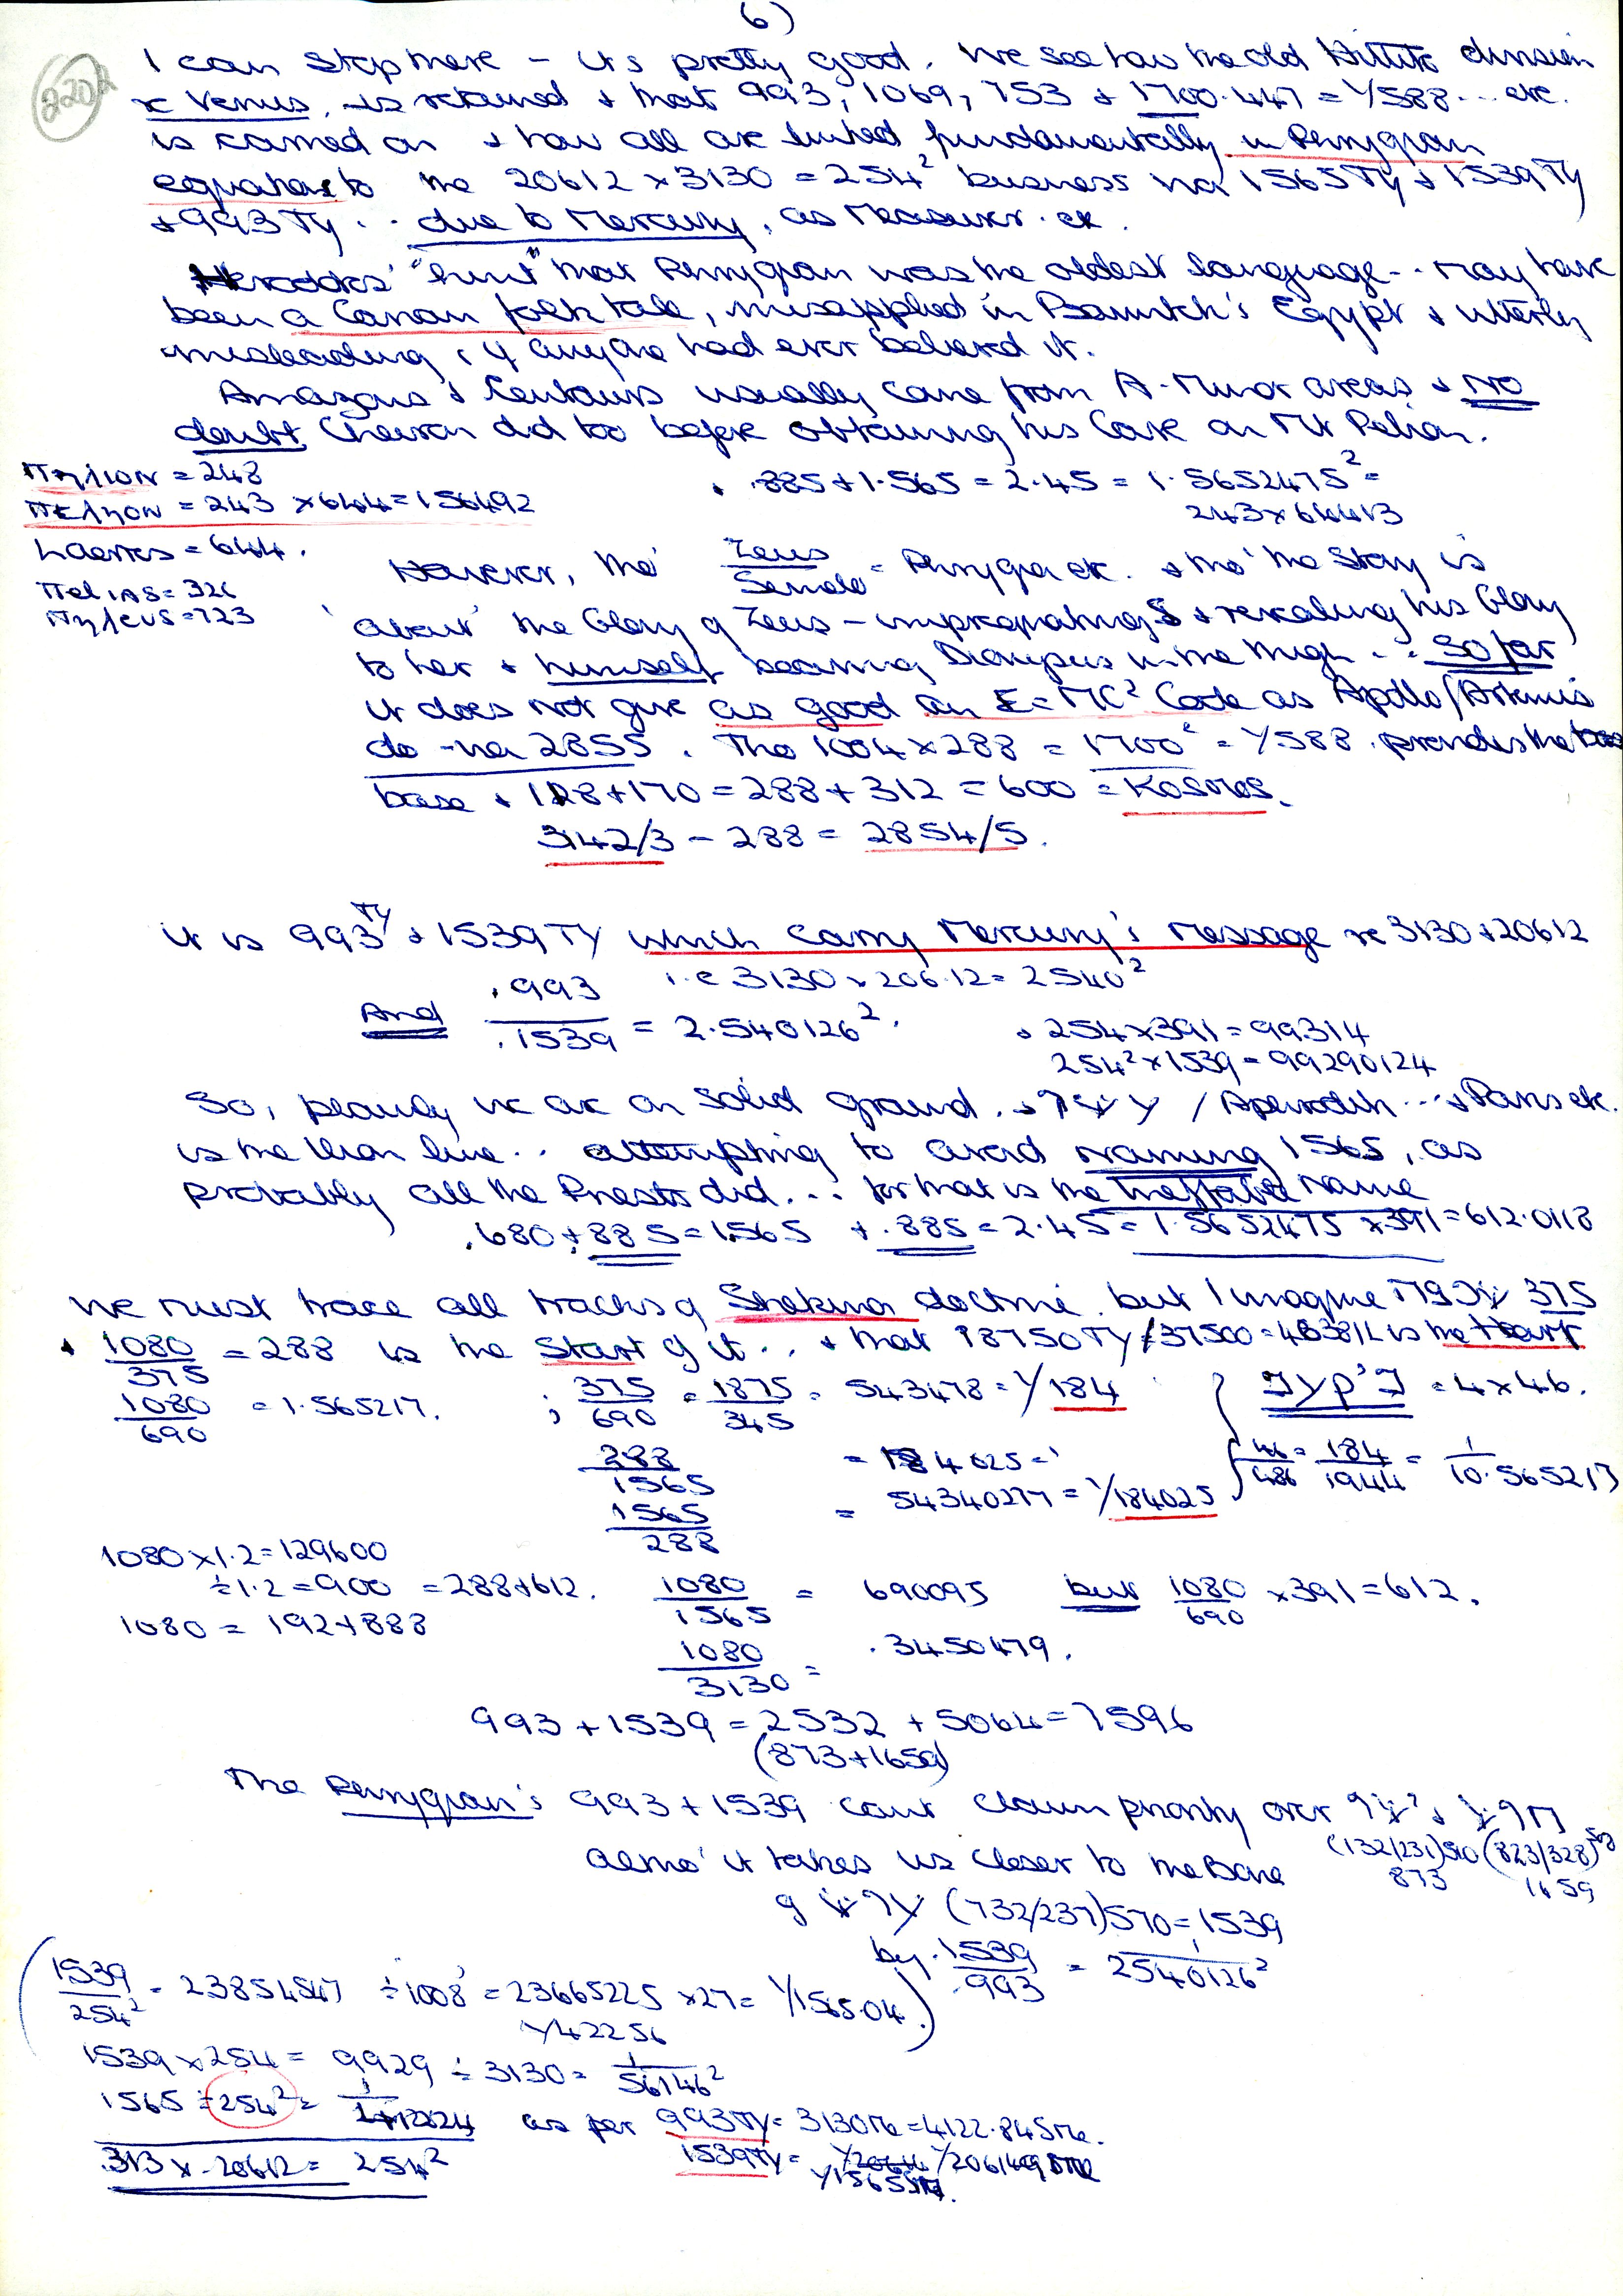 6)
220
I can stop here – it's pretty good. We see how the old Hittite division
re Venus, is retained + that 993, 1069, 753 + 1700.447 = 1/588... etc.
is carried on + how all are linked fundamentally in Phrygian
equations to the 20612 × 3130 = 254² business via 1565 TY + 1539 TY
+ 993 TY .. due to Mercury, as Measurer. etc.
Herodotus' "hint" that Phrygian was the oldest language .. may have
been a Carian folk tale, misapplied in Egypt & utterly
misleading, if anyone had ever believed it.
Amazons & Centaurs usually came from A. Minor areas & NO
doubt Cheiron did too before obtaining his Cave on Mt Pelion.
Πηλιον = 248
Πελιον = 243 × 644 = 156492
Laertes = 644.
Πελιας = 326
Πηλευς = 723
.885 + 1.565 = 2.45 = 1.5652475² =
243 × 64413
However, the Zeus/Semele = Phrygia etc. & tho' the Story is
'about' the Glory of Zeus – impregnating S & revealing his Glory
to her & himself bearing Dionysus in the thigh .. So far
it does not give as good an E=MC² Code as Apollo/Artemis
do – via 2855. The 1004 × 288 = 1700² = 1/588. provides the
base + 118 + 170 = 288 + 312 = 600 = Kosmos.
3142/3 – 288 = 2854/5.
it is 993 TY + 1539 TY which carry Mercury's message re 3130 + 20612
i.e 3130 × 206.12 = 2540²
And .993/.1539 = 2.540126².
+ 254 × 391 = 99314
254² × 1539 = 99290124
So, plainly we are on solid ground. / Aphrodite ... + Paris etc.
is the then line .. attempting to avoid naming 1565, as
probably all the Priests did ... for that is the Ineffable Name
.680 + .885 = 1.565 + .885 = 2.45 = 1.5652475 × 391 = 612.0118
We must trace all tracks of Shekina doctrine, but I imagine 375
+ 1080/375 = 288 is the Start of it .. + that 18750 TY / 37500 = is the Start
1080/690 = 1.565217. ; 375/690 = 1875/345 = 543478 = 1/184 = 4×46.
288/1565 = 184025 = 1
1565/288 = 54340277 = 1/184025
46/486 = 184/1944 = 1/10.565217
1080 × 1.2 = 129600
÷ 1.2 = 900 = 288 + 612.
1080 = 192 + 888
1080/1565 = 690095 but 1080/690 × 391 = 612.
1080/3130 = .3450479.
993 + 1539 = 2532 + 5064 = 7596
(873 + 1659)
The Phrygian's 993 + 1539 can't claim priority over
(132/231) 510 (823/328) 508
873 1659
altho' it takes us closer to the Bone
of (732/237) 570 = 1539
by .1539/.993 = 1/2540126²
(1539/254² = 23854547 ÷ 1008 = 23665225 × 27 = 1/1565.04.)
1/42256
1539 × 254² = 9929 ÷ 3130 = 1/56146²
1565 ÷ 254² = as per 993 TY = 3130 = 4122.845
.313 × .20612 = 254²
1539 TY =